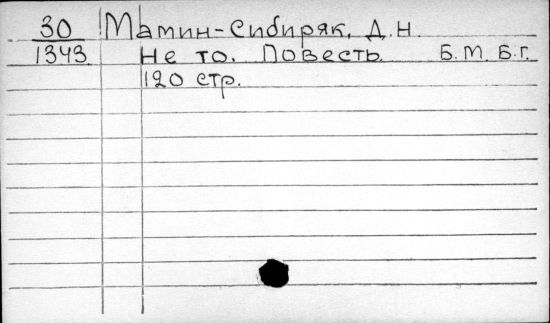 30 Мамин-Сибиряк, Д.Н.
1343 Не то. Повесть. Б.М. Б.г.
120 стр.